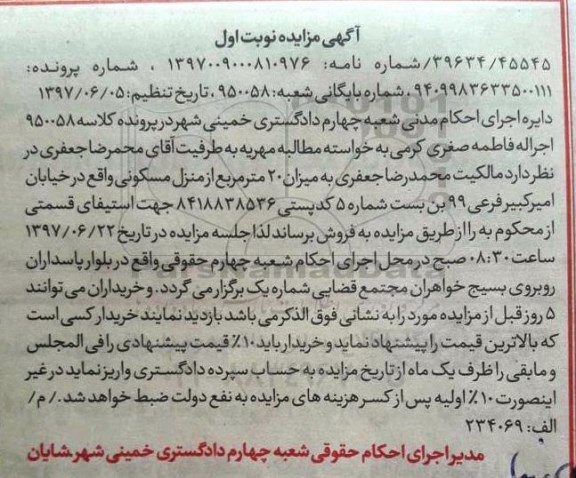 آگهی مزایده نوبت اول
۳۹۶۳۴/۴۵۵۴۵/شماره نامه: ۱۳۹۷۰۰۹۰۰۰۸۱۰۹۷۶ ، شماره پرونده:
۹۴۰۹۹۸۳۶۳۳۵۰۰۱۱۱، شماره بایگانی شعبه: ۹۵۰۰۵۸، تاریخ تنظیم: ۱۳۹۷/۰۶/۰۵
دایره اجرای احکام مدنی شعبه چهارم دادگستری خمینی شهر در پرونده کلاسه ۹۵۰۰۵۸
اجرا له فاطمه صغری کرمی به خواسته مطالبه مهریه به طرفیت آقای محمرضا جعفری در
نظر دارد مالکیت محمدرضا جعفری به میزان ۲۰ مترمربع از منزل مسکونی واقع در خیابان
امیرکبیر فرعی ۹۹ بن بست شماره ۵ کدپستی ۸۴۱۸۸۳۸۵۳۶ جهت استیفای قسمتی
از محکوم به را از طریق مزایده به فروش برساند لذا جلسه مزایده در تاریخ ۱۳۹۷/۰۶/۲۲
ساعت ۰۸:۳۰ صبح در محل اجرای احکام شعبه چهارم حقوقی واقع در بلوار پاسداران
روبروی بسیج خواهران مجتمع قضایی شماره یک برگزار می گردد. و خریداران می توانند
۵ روز قبل از مزایده مورد را به نشانی فوق الذکر می باشد بازدید نمایند خریدار کسی است
که بالاترین قیمت را پیشنهاد نماید و خریدار باید ۱۰٪ قیمت پیشنهادی را فی المجلس
و مابقی را ظرف یک ماه از تاریخ مزایده به حساب سپرده دادگستری واریز نماید در غیر
اینصورت ۱۰٪ اولیه پس از کسر هزینه های مزایده به نفع دولت ضبط خواهد شد. / م/
الف: ۲۳۴۰۶۹
مدیر اجرای احکام حقوقی شعبه چهارم دادگستری خمینی شهر.شایان